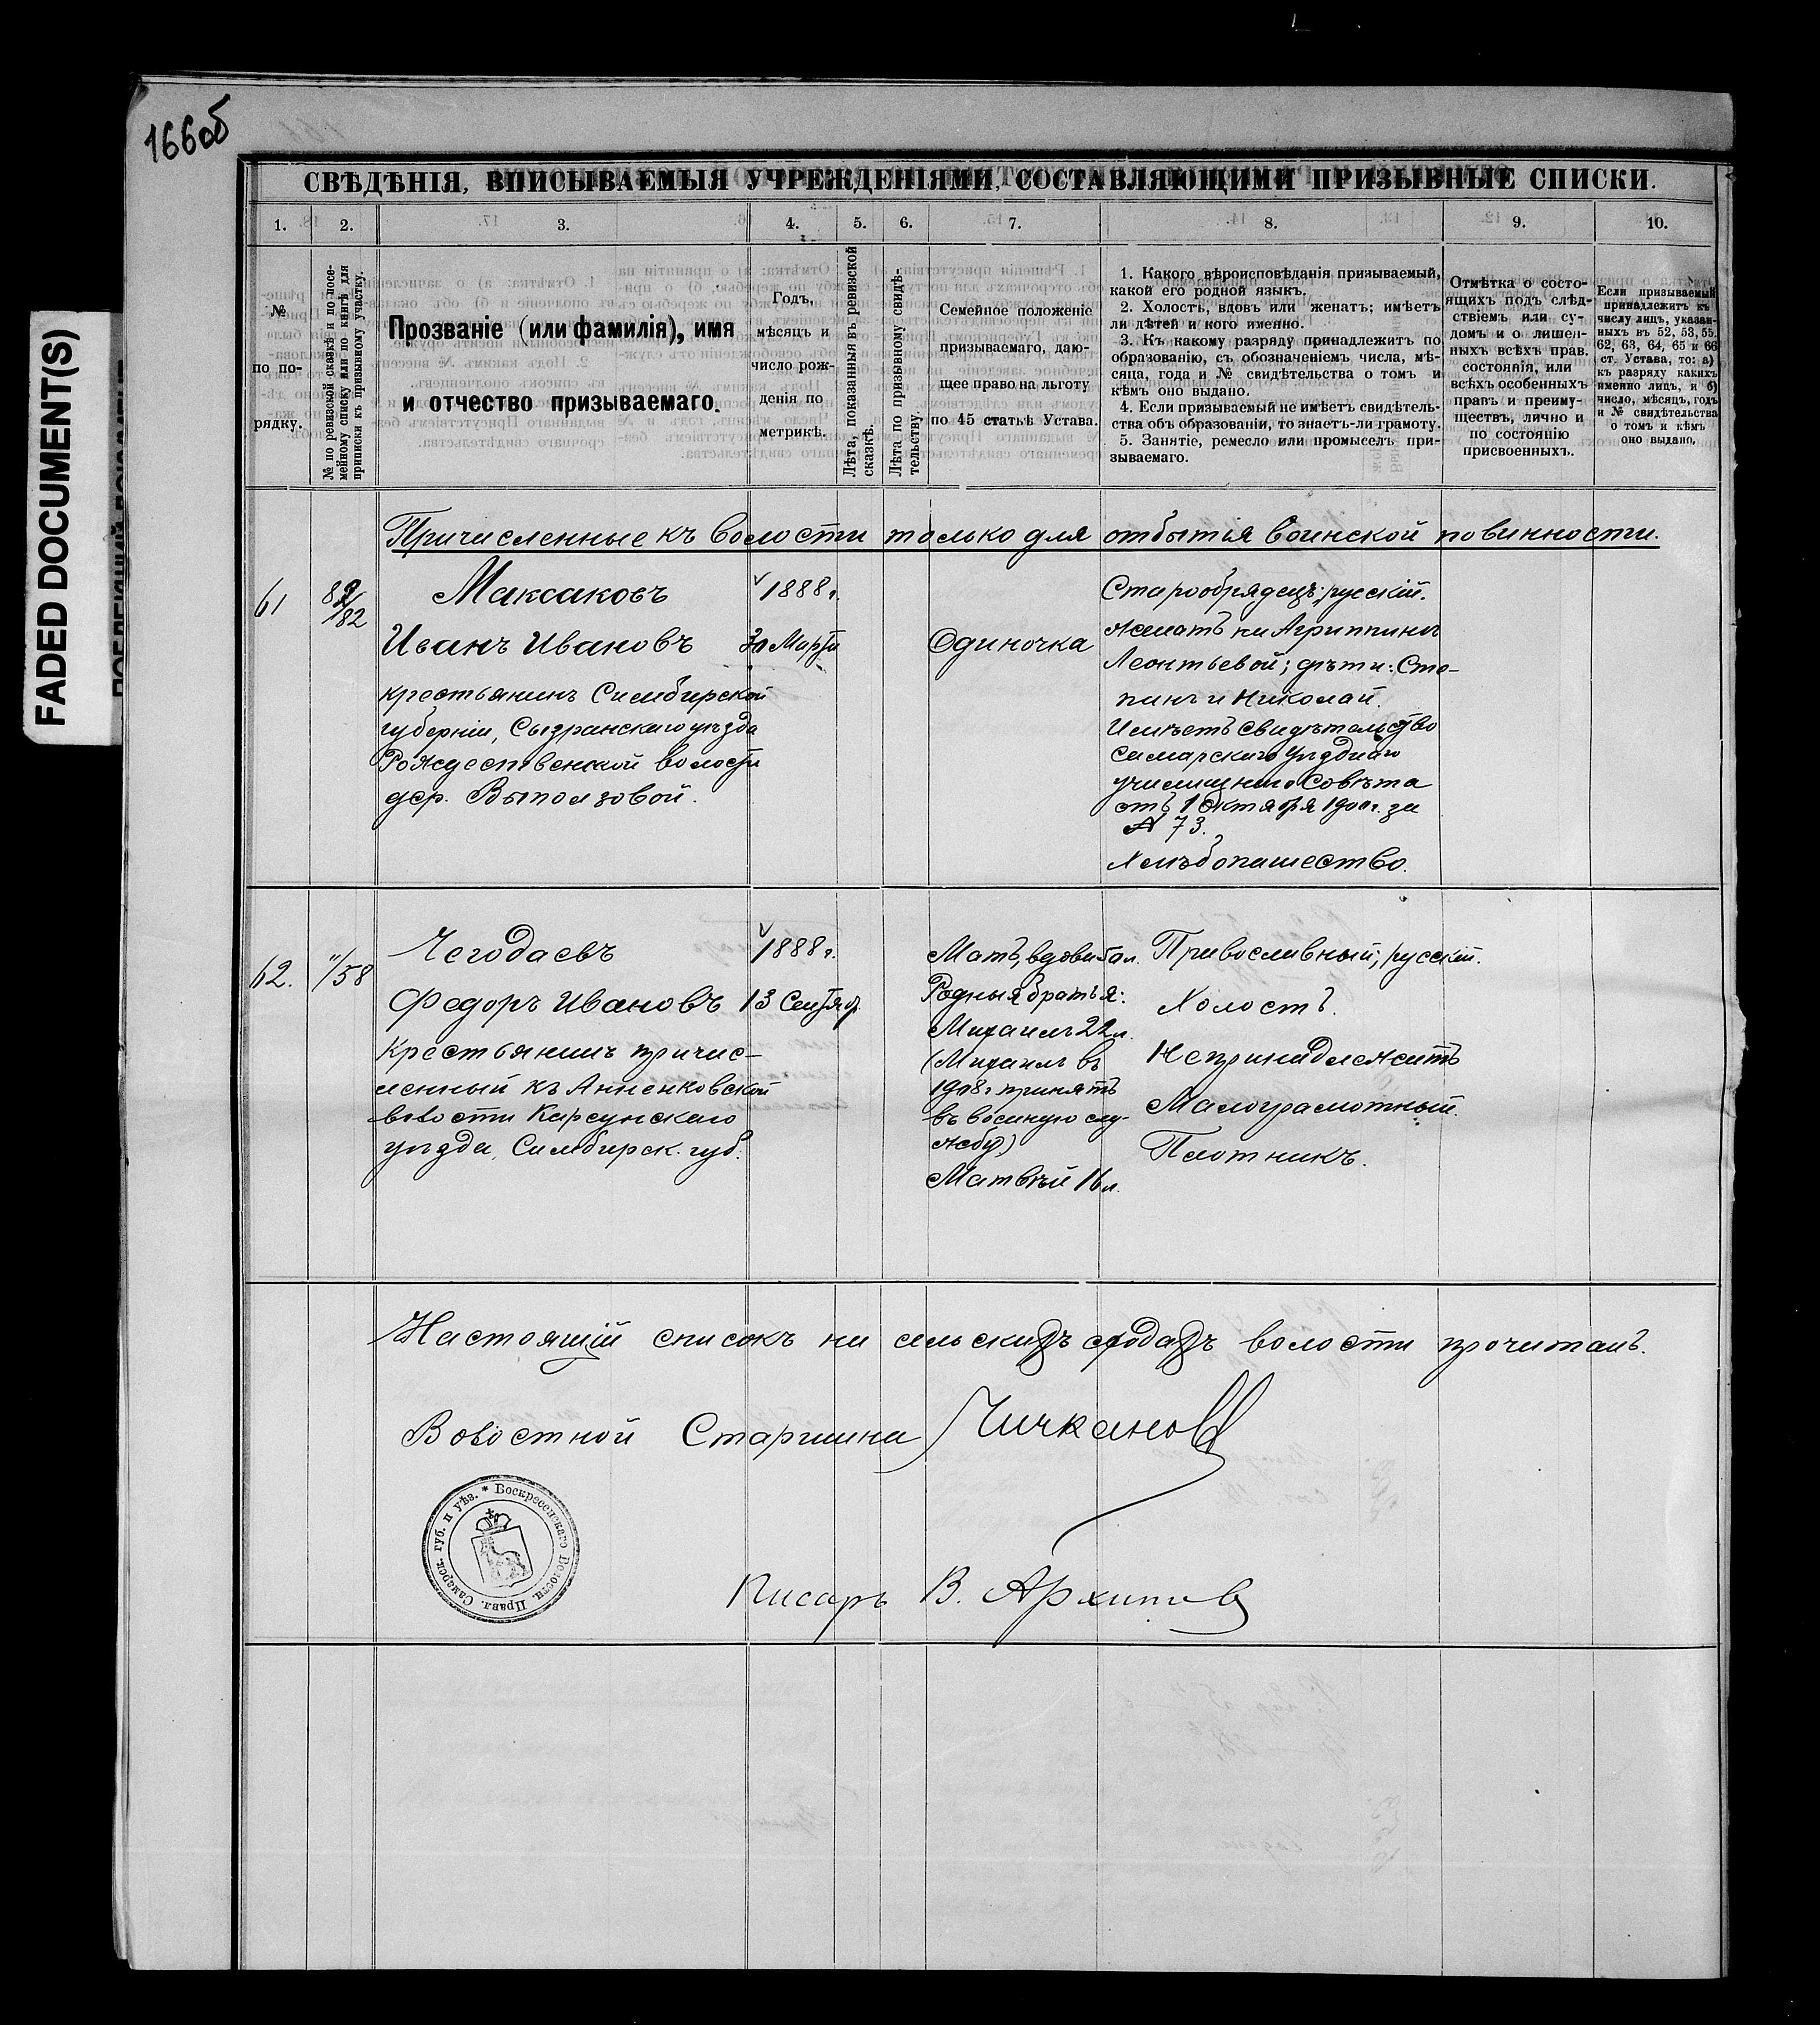 166об
FADED DOCUMENT(S)
СВѢДѢНІЯ, ВПИСЫВАЕМЫЯ УЧРЕЖДЕНІЯМИ, СОСТАВЛЯЮЩИМИ ПРИЗЫВНЫЕ СПИСКИ.
1. 2. 3. 4. 5. 6. 7. 8. 9. 10.
№
по по-
рядку.
№ по ревизской сказкѣ и по посе-
мейному списку или по книгѣ для
приписки къ призывному участку.
Прозваніе (или фамилія), имя
и отчество призываемаго.
Годъ,
мѣсяцъ и
число рож-
денія по
метрикѣ.
Лѣта, показанныя въ ревизской
сказкѣ.
Лѣта по призывному свидѣ-
тельству.
Семейное положеніе
призываемаго, даю-
щее право на льготу
по 45 статьѣ Устава.
1. Какого вѣроисповѣданія призываемый,
какой его родной языкъ.
2. Холостъ, вдовъ или женатъ; имѣетъ
ли дѣтей и кого именно.
3. Къ какому разряду принадлежитъ по
образованію, съ обозначеніемъ числа, мѣ-
сяца, года и № свидѣтельства о томъ и
кѣмъ оно выдано.
4. Если призываемый не имѣетъ свидѣтель-
ства объ образованіи, то знаетъ-ли грамоту.
5. Занятіе, ремесло или промыселъ при-
зываемаго.
Отмѣтка о состо-
ящихъ подъ слѣд-
ствіемъ или су-
домъ и о лишен-
ныхъ всѣхъ прав.
состоянія, или
всѣхъ особенныхъ
правъ и преиму-
ществъ, лично и
по состоянію
присвоенныхъ.
Если призываемый
принадлежитъ къ
числу лицъ, указан-
ныхъ въ 52, 53, 55,
62, 63, 64, 65 и 66
ст. Устава, то: а)
къ разряду какихъ
именно лицъ, и б)
число, мѣсяцъ, годъ
и № свидѣтельства
о томъ и кѣмъ
оно выдано.
Причисленные къ волости только для отбытія воинской повинности.
61
/82
Максаковъ
Иванъ Ивановъ
крестьянинъ Симбирской
губерніи, Сызранскаго уѣзда
Рождественской волости
дер. Выползовой.
1888 г.
30 Марта
Одиночка
Старообрядецъ; русскій.
Женатъ на Агриппинѣ
Леонтьевой; дѣти: Сте-
панъ и Николай.
Имѣетъ свидѣтельство
Самарскаго Уѣзднаго
училищнаго Совѣта
отъ 1 Октября 1900 г. за
№ 73.
Хлѣбопашество.
62.
11/58
Чегодаевъ
Федоръ Ивановъ
крестьянинъ причис-
ленный къ Анненковской
волости Карсунскаго
уѣзда, Симбирск. губ.
1888 г.
13 Сентяб.
Мать, вдова 50 л.
Родныя братья:
Михаилъ 22 л.
(Михаилъ въ
1908 г принятъ
въ военную слу-
жбу)
Матвѣй 16 л.
Православный; русскій.
Холостъ.
Непринадлежитъ
Малограмотный.
Плотникъ.
Настоящій списокъ на сельскихъ сходахъ волости прочитанъ.
Волостной Старшина Чичкановъ
* Воскресенскаго Волостн. Правл. Самарск. губ. и уѣз.
Писарь В. Архипов